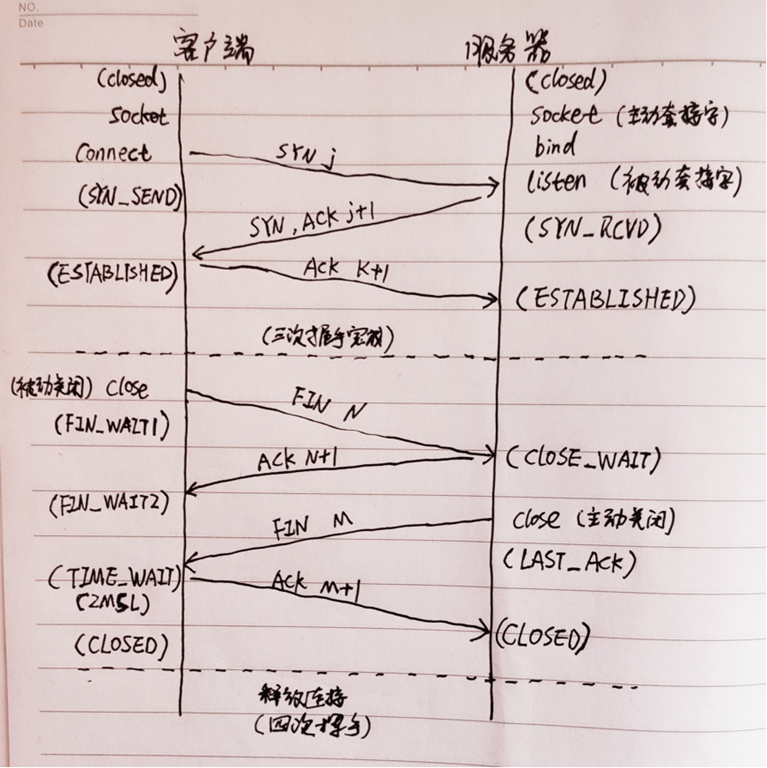 NO.
Date
客户端 服务器
(closed) (closed)
socket socket (主动套接字)
connect SYN j bind
listen (被动套接字)
(SYN_SEND)
SYN, ACK j+1 (SYN_RCVD)
(ESTABLISHED) ACK K+1
(ESTABLISHED)
(三次握手完成)
(被动关闭) close FIN N
(FIN_WAIT1)
ACK N+1 (CLOSE_WAIT)
(FIN_WAIT2)
FIN M close (主动关闭)
(LAST_ACK)
(TIME_WAIT) ACK M+1
(2MSL)
(CLOSED) (CLOSED)
释放连接
(四次挥手)